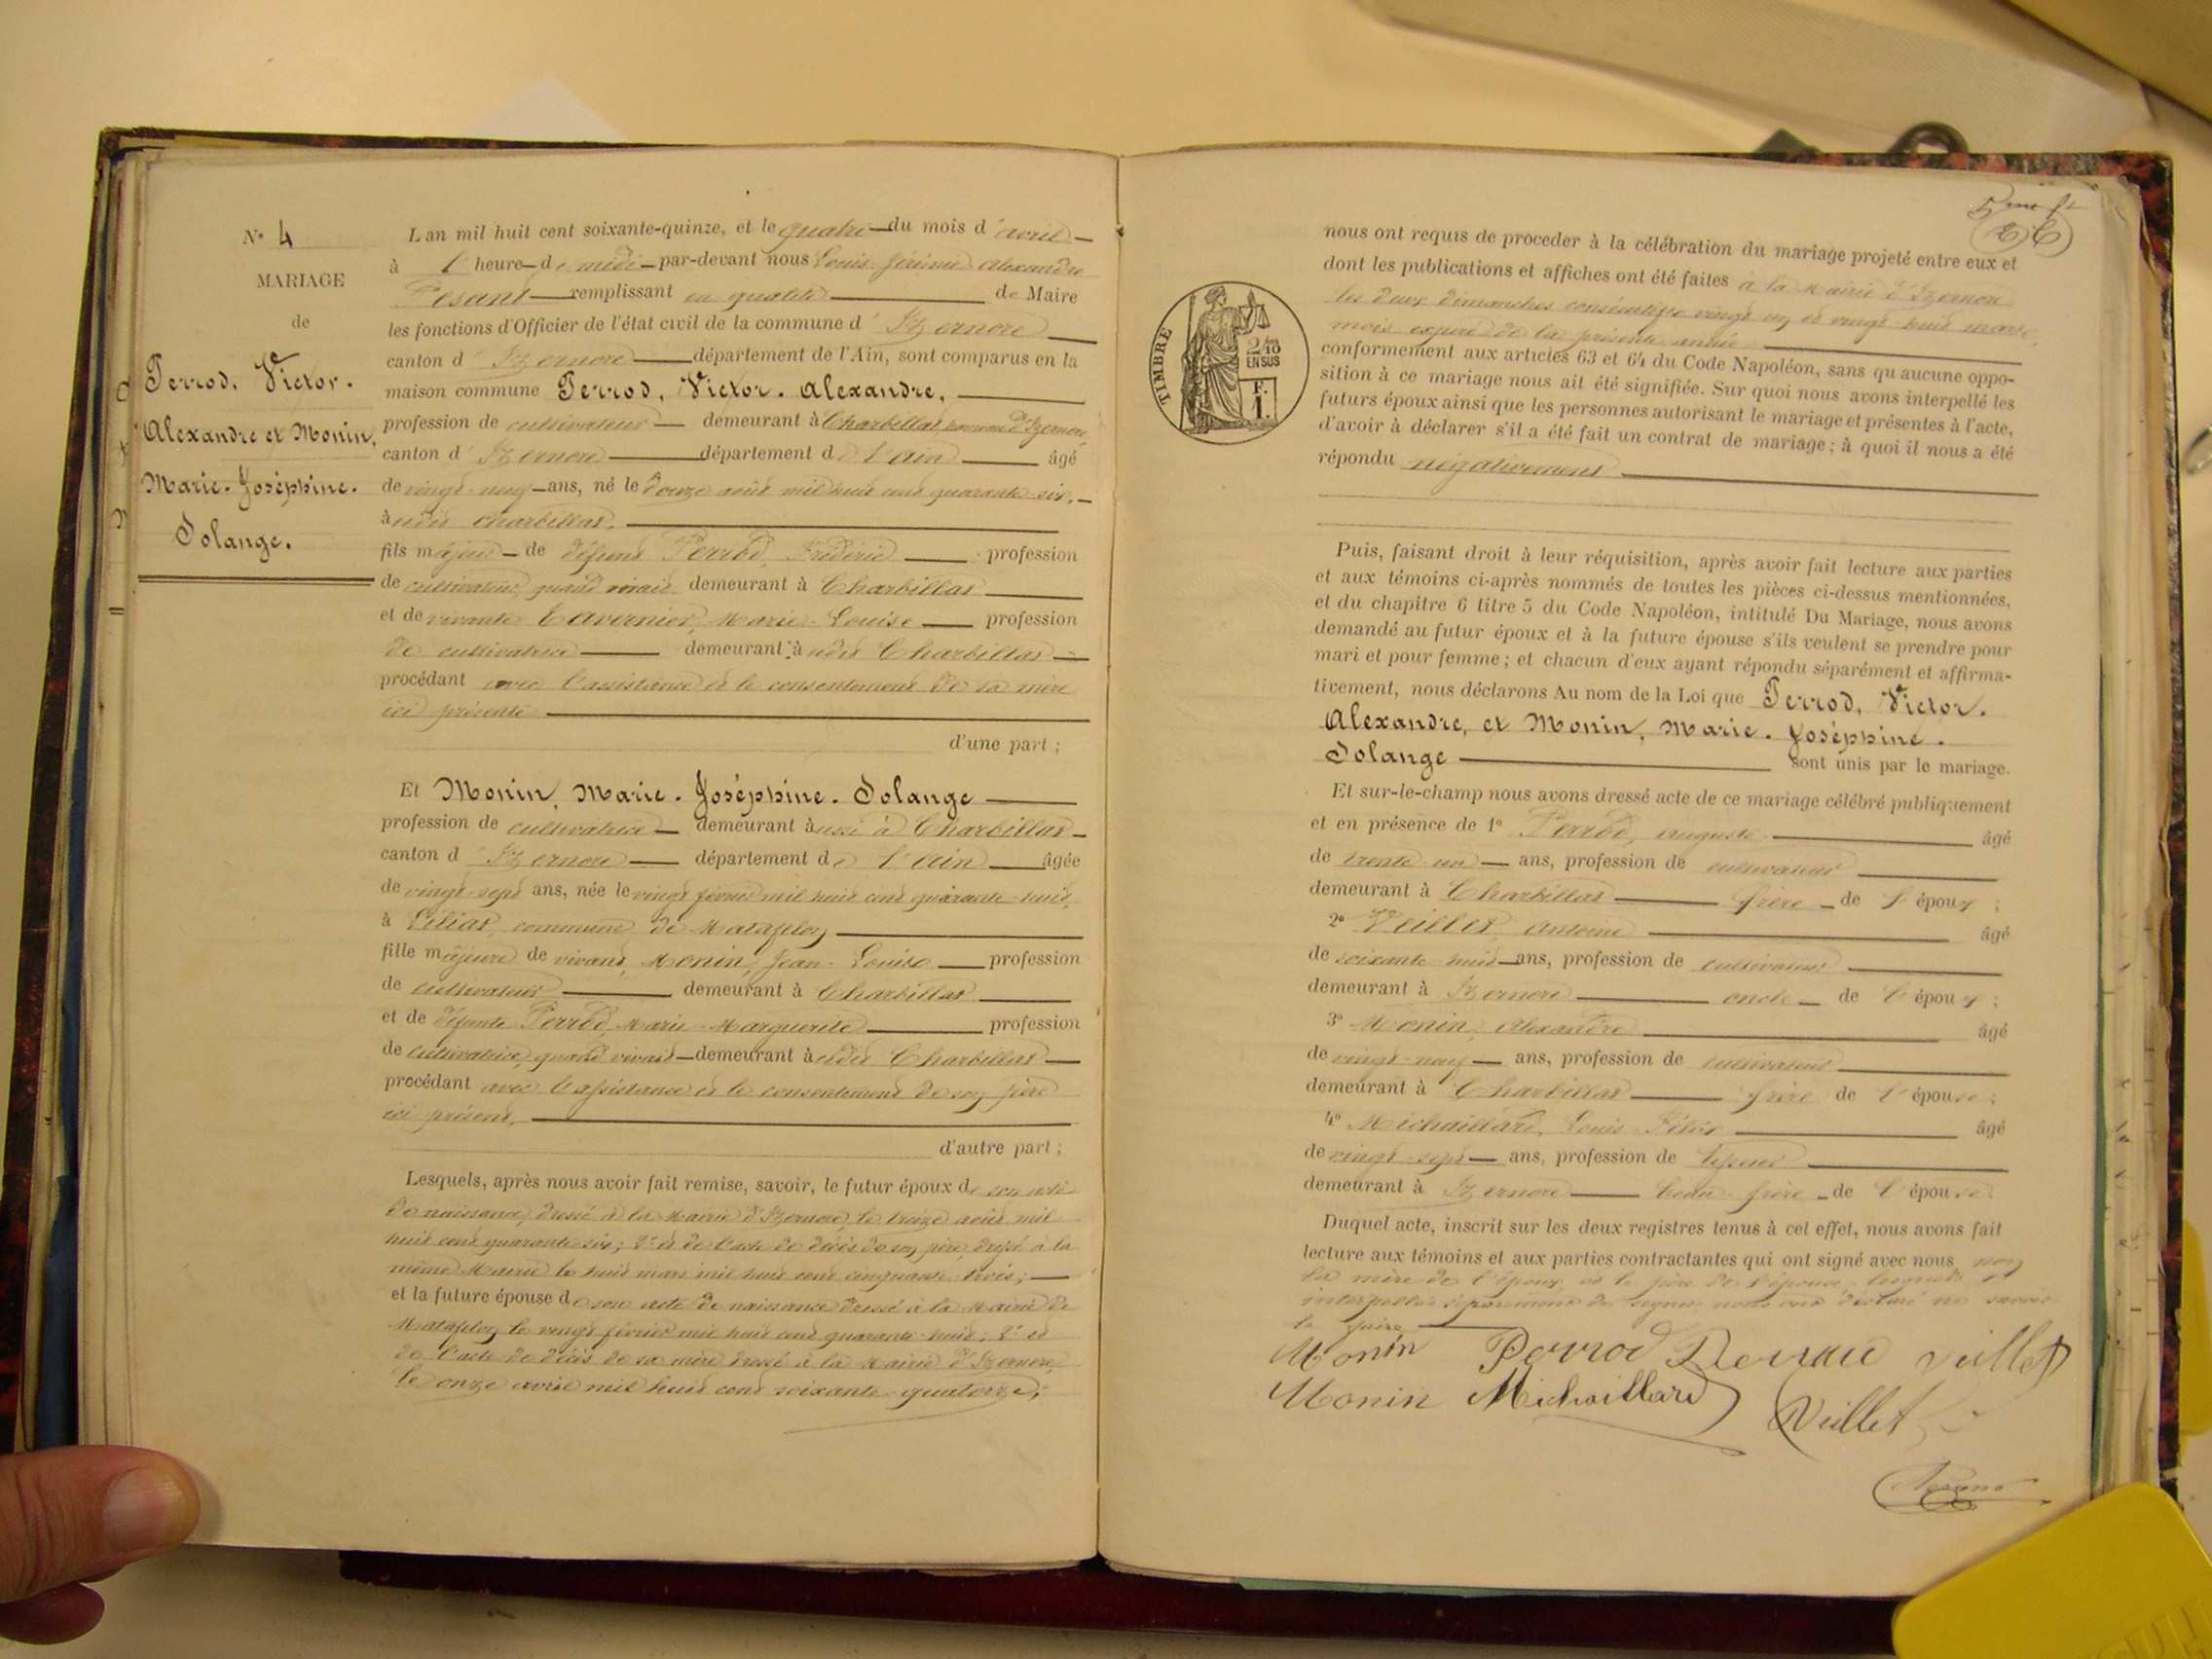 N° 4
MARIAGE
de
Perrod, Victor.
Alexandre et Monin,
Marie-Joséphine.
Solange.
L'an mil huit cent soixante-quinze, et le quatre du mois d'avril
à l'heure de midi par-devant nous Louis Jérémie Alexandre
Pesant remplissant en qualité de Maire
les fonctions d'Officier de l'état civil de la commune d'Izernore
canton d'Izernore département de l'Ain, sont comparus en la
maison commune Perrod, Victor. Alexandre,
profession de cultivateur demeurant à Charbillat, commune d'Izernore,
canton d'Izernore département de l'Ain âgé
de vingt-neuf ans, né le douze août mil huit cent quarante-six,
à udit Charbillat,
fils majeur de défunt Perrod, Frédéric profession
de cultivateur, quand vivait demeurant à Charbillat
et de vivante Tavernier, Marie-Louise profession
de cultivatrice demeurant à udit Charbillat
procédant avec l'assistance et le consentement de sa mère
ici présente
d'une part ;
Et Monin, Marie. Joséphine. Solange
profession de cultivatrice demeurant aussi à Charbillat
canton d'Izernore département de l'Ain âgée
de vingt-sept ans, née le vingt février mil huit cent quarante-huit,
à commune de Matafelon
fille majeure de vivant, Monin, Jean-Louis profession
de cultivateur demeurant à Charbillat
et de défunte Perrod, Marie-Marguerite profession
de cultivatrice, quand vivait demeurant à udit Charbillat
procédant avec l'assistance et le consentement de son père
ici présent,
d'autre part ;
Lesquels, après nous avoir fait remise, savoir, le futur époux de son acte
de naissance, dressé à la Mairie d'Izernore, le treize août mil
huit cent quarante-six ; 2° et de l'acte de décès de son père, dressé à la
même Mairie le huit mars mil huit cent cinquante-trois ;
et la future épouse de son acte de naissance dressé à la Mairie de
Matafelon le vingt février mil huit cent quarante-huit ; 2° et
de l'acte de décès de sa mère dressé à la Mairie d'Izernore,
le onze avril mil huit cent soixante-quatorze ;
5me ft
TIMBRE
2/10
EN SUS
F.
1.
nous ont requis de proceder à la célébration du mariage projeté entre eux et
dont les publications et affiches ont été faites à la Mairie d'Izernore
les deux dimanches consécutifs vingt un et vingt huit mars,
mois expiré de la présente année
conformement aux articles 63 et 64 du Code Napoléon, sans qu'aucune oppo-
sition à ce mariage nous ait été signifiée. Sur quoi nous avons interpellé les
futurs époux ainsi que les personnes autorisant le mariage et présentes à l'acte,
d'avoir à déclarer s'il a été fait un contrat de mariage ; à quoi il nous a été
répondu négativement
Puis, faisant droit à leur réquisition, après avoir fait lecture aux parties
et aux témoins ci-après nommés de toutes les pièces ci-dessus mentionnées,
et du chapitre 6 titre 5 du Code Napoléon, intitulé Du Mariage, nous avons
demandé au futur époux et à la future épouse s'ils veulent se prendre pour
mari et pour femme ; et chacun d'eux ayant répondu séparément et affirma-
tivement, nous déclarons Au nom de la Loi que Perrod, Victor.
Alexandre, et Monin, Marie. Joséphine.
Solange sont unis par le mariage.
Et sur-le-champ nous avons dressé acte de ce mariage célébré publiquement
et en présence de 1° Perrod, Auguste âgé
de trente-un ans, profession de cultivateur
demeurant à Charbillat frère de l'époux ;
2° Veillet, Antoine âgé
de soixante-huit ans, profession de cultivateur
demeurant à Izernore oncle de l'époux ;
3° Monin, Alexandre âgé
de vingt-neuf ans, profession de cultivateur
demeurant à Charbillat frère de l'épouse ;
4° Michaillard, Louis âgé
de vingt-sept ans, profession de
demeurant à Izernore beau-frère de l'épouse
Duquel acte, inscrit sur les deux registres tenus à cet effet, nous avons fait
lecture aux témoins et aux parties contractantes qui ont signé avec nous non
la mère de l'époux et le père de l'épouse, lesquels
interpellés séparément de signer nous ont déclaré ne savoir
le faire
Monin Perrod Veillet
Monin Michaillard Veillet
Pesant